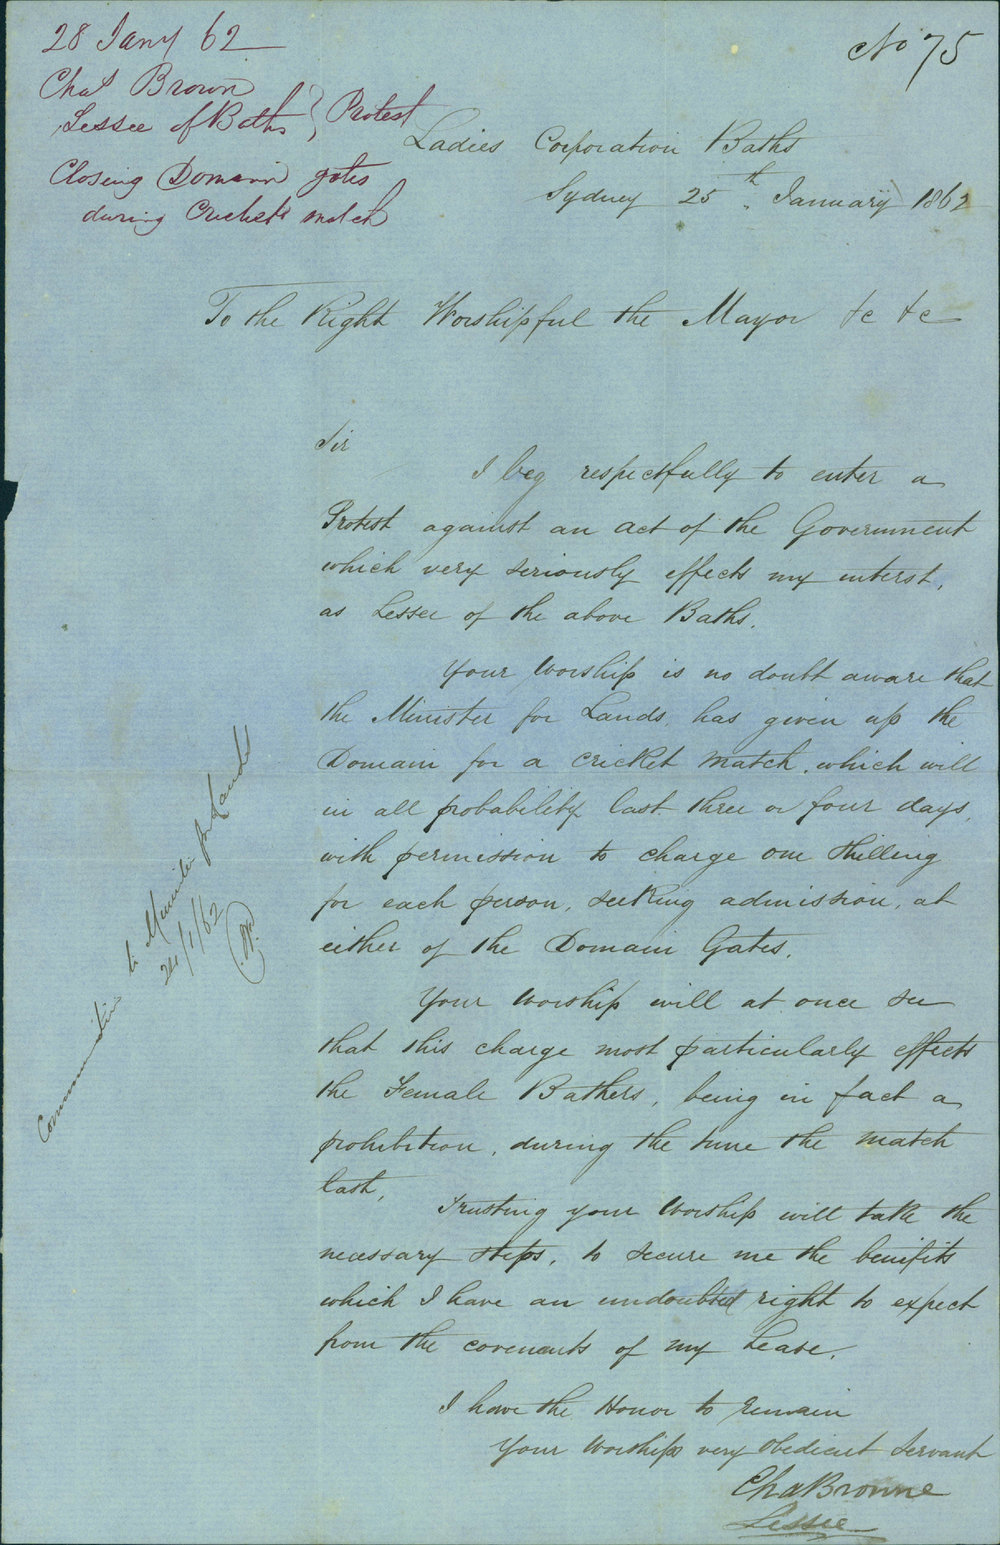 28 Jany 62
No 75
Chas Brown
Lessee of Baths } Protest
Closing Domain gates
during Crickets match
Ladies Corporation Baths
Sydney 25th January 1862
To the Right Worshipful the Mayor &c &c
Sir
I beg respectfully to enter a
Protest against an act of the Government
which very seriously effects my interst,
as Lessee of the above Baths.
Your Worship is no doubt aware that
the Minister for Lands, has given up the
Domain for a cricket match, which will
in all probability last three or four days,
with permission to charge one shilling
for each person, seeking admission, at
either of the Domain Gates.
Your Worship will at once see
that this charge most particularly effects
the Female Bathers, being in fact a
prohibition, during the time the match
last.
Trusting your Worship will take the
necessary steps, to secure me the benifits
which I have an undoubted right to expect
from the covenants of my Lease.
I have the Honor to remain
Your Worships very obedient servant
Chas Browne
Lessee
to Minister for Lands
/1/62